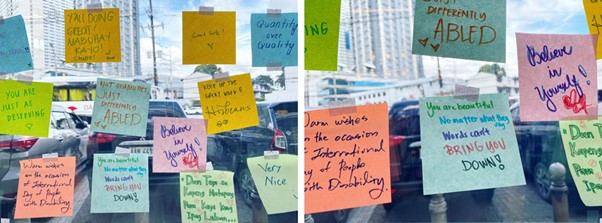 Y'ALL DOING
GREAT!
MABUHAY
KAYO!
Quantity
over
Quality
YOU ARE
JUST AS
DESERVING
NOT DISABLED
JUST
DIFFERENTLY
ABLED
KEEP UP THE
GREAT WORK
Believe
in
Yourself!
Warm wishes
on the occasion
of International
Day of People
with Disability.
You are beautiful
No matter what they say
Words can't
BRING YOU
DOWN!
Very
Nice
DIFFERENTLY
ABLED
Believe
in
Yourself!
Warm wishes
on the occasion
of International
Day of People
with Disability.
You are beautiful
No matter what they say
Words can't
BRING YOU
DOWN!